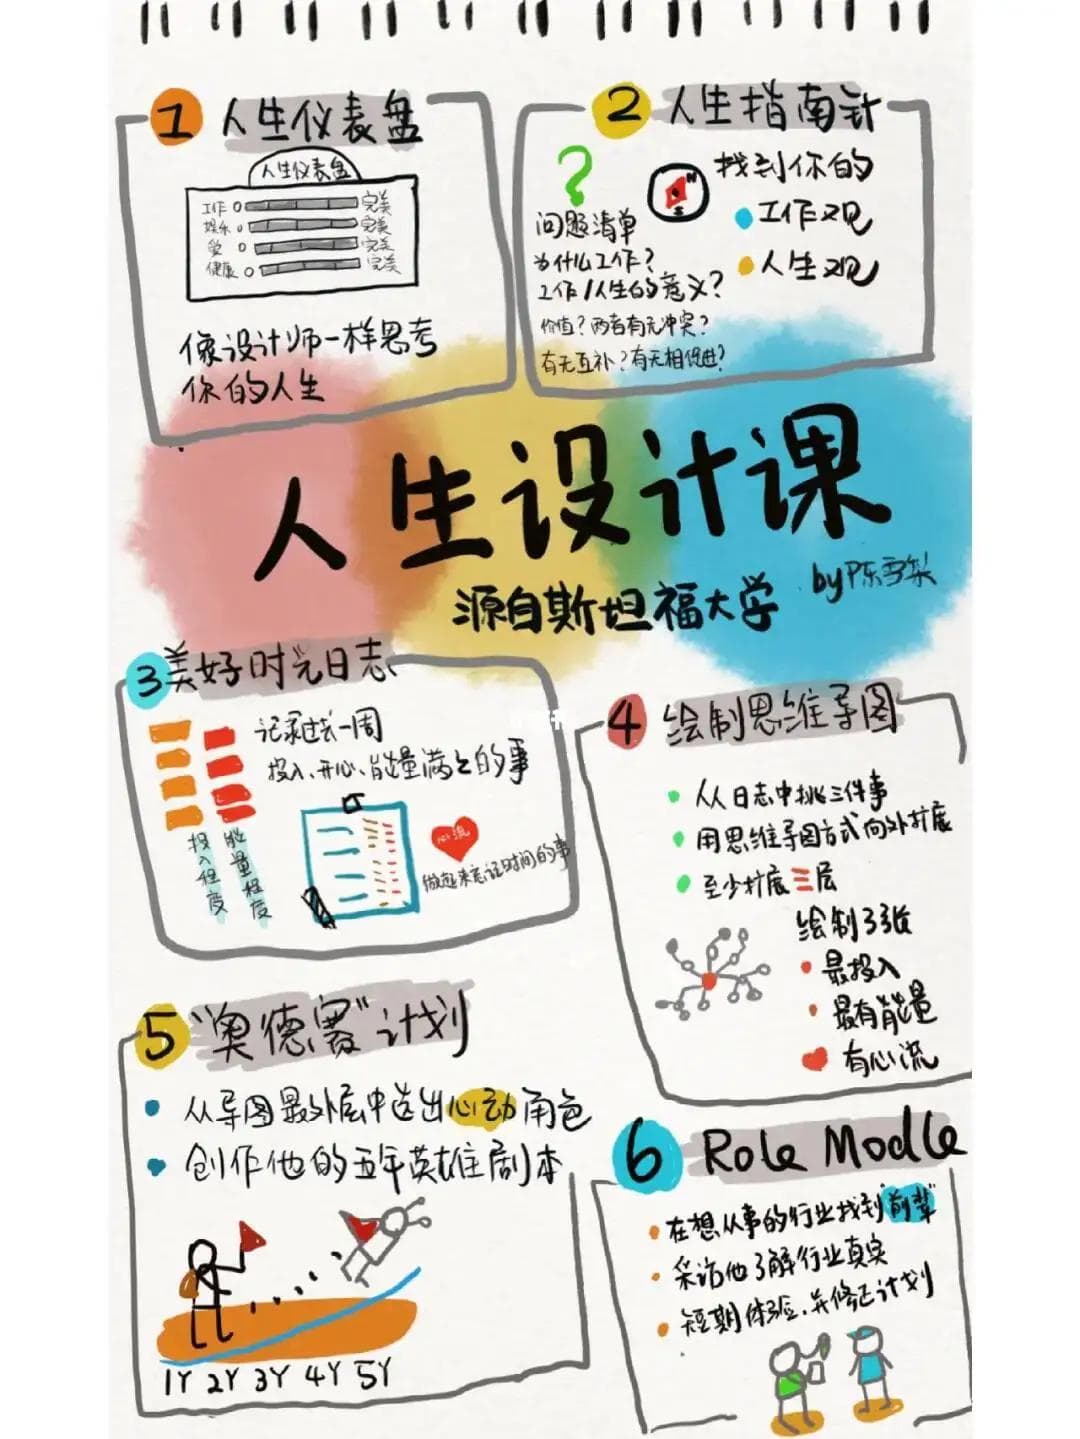 1 人生仪表盘
人生仪表盘
工作 完美
娱乐 完美
爱 完美
健康 完美
像设计师一样思考
你的人生
2 人生指南针
找到你的
工作观
人生观
?
N
S
问题清单
为什么工作?
工作/人生的意义?
价值?两者有无冲突?
有无互补?有无相促进?
人生设计课
源自斯坦福大学
by陈雪梨
3 美好时光日志
记录过去一周
投入、开心、能量满之的事
投入程度
能量程度
心流
做起来忘记时间的事
4 绘制思维导图
从日志中挑三件事
用思维导图方式向外扩展
至少扩展三层
绘制3张
最投入
最有能量
有心流
5 “奥德赛”计划
从导图最外层中选出心动角色
创作他的五年英雄剧本
1Y 2Y 3Y 4Y 5Y
6 Role Modle
在想从事的行业找到前辈
采访他了解行业真实
短期体验、并修正计划